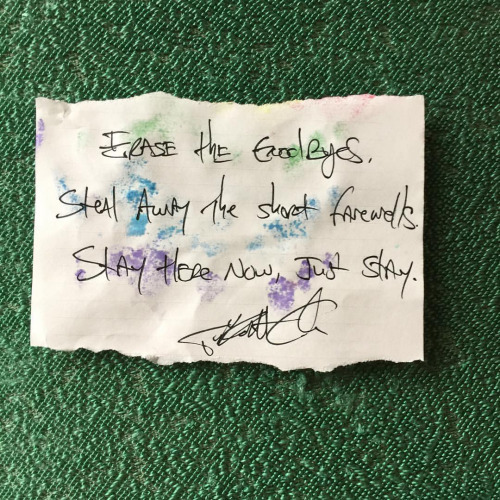 Erase the Goodbyes.
Steal Away the short farewells.
Stay Here Now, Just Stay.